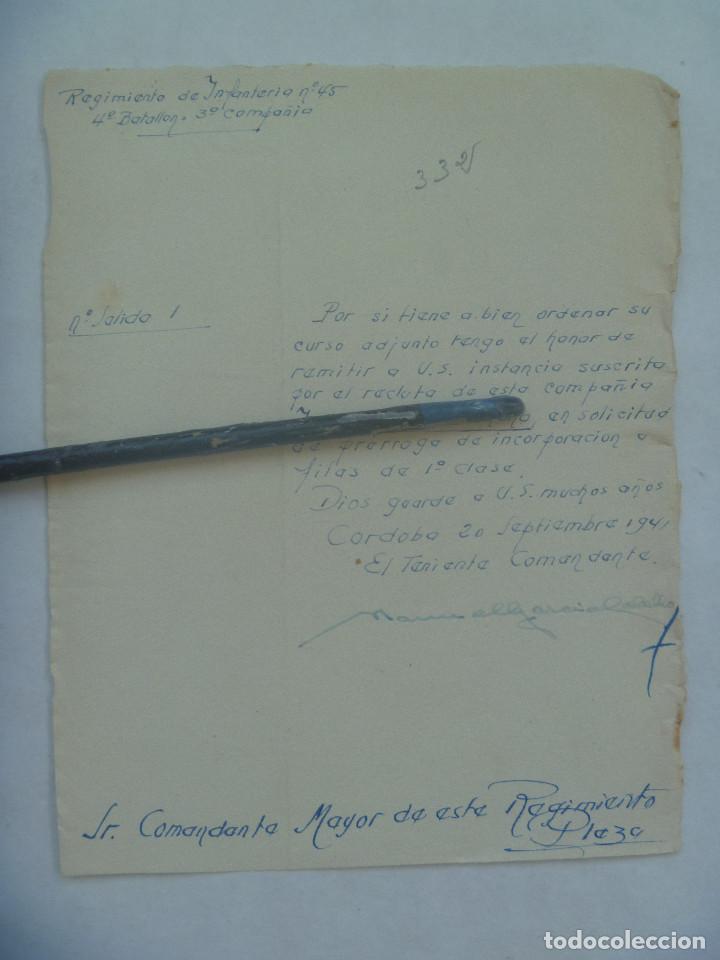 Regimiento de Infanteria nº 45
4º Batallon. 3ª compañia
332
nº Salida 1
Por si tiene a bien ordenar su
curso adjunto tengo el honor de
remitir a U.S. instancia suscrita
por el recluta de esta compañia
en solicitud
de prórroga de incorporacion a
filas de 1ª clase.
Dios guarde a U.S. muchos años
Cordoba 20 Septiembre 1941
El Teniente Comandante.
Manuel Garcia
Sr. Comandante Mayor de este Regimiento
Plaza
todocoleccion
todocoleccion.net